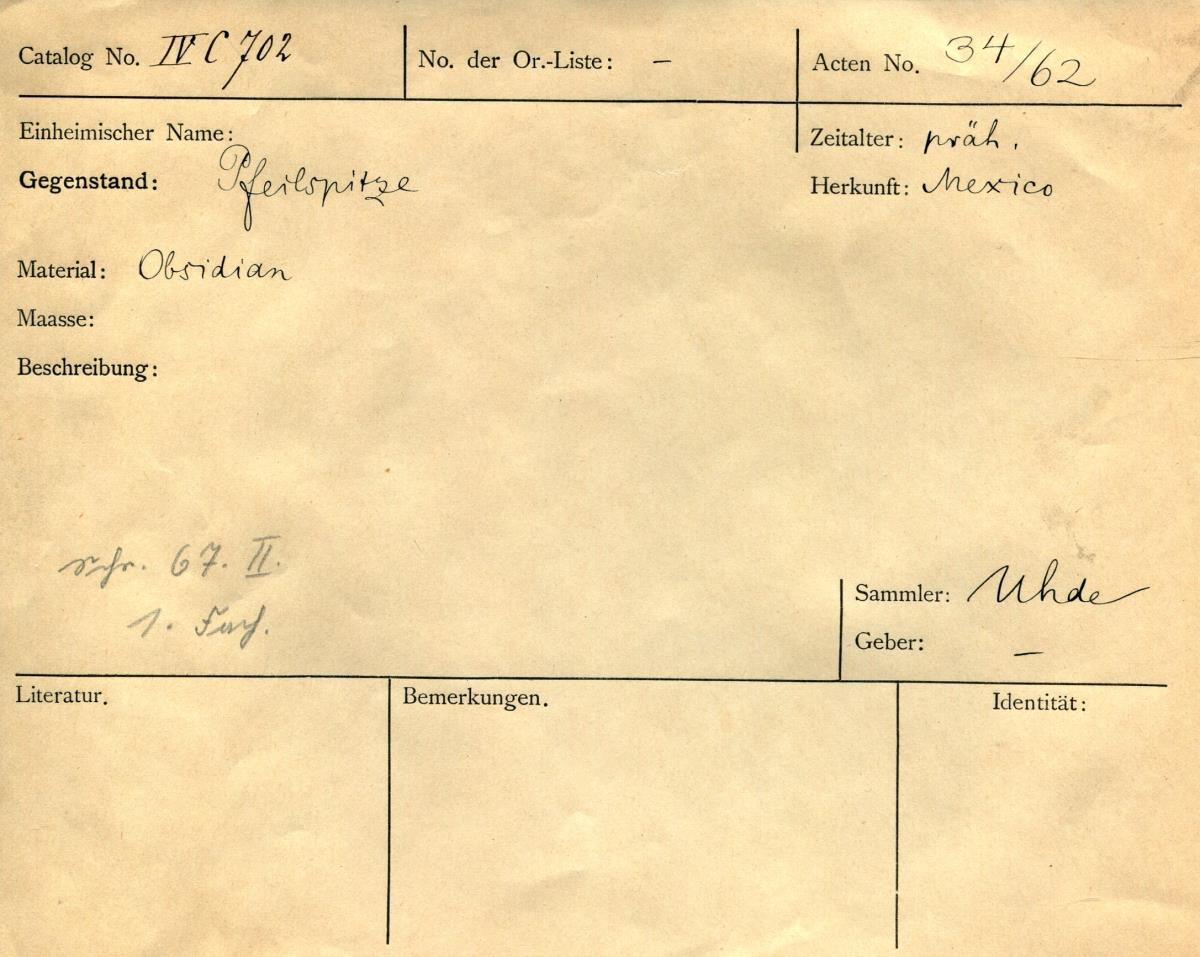 Catalog No. IV C 702 No. der Or.-Liste: – Acten No. 34/62
Einheimischer Name:
Zeitalter: präh.
Gegenstand: Pfeilspitze
Herkunft: Mexico
Material: Obsidian
Maasse:
Beschreibung:
Schr. 67. II.
1. Fach.
Sammler: Uhde
Geber: –
Literatur. Bemerkungen. Identität: